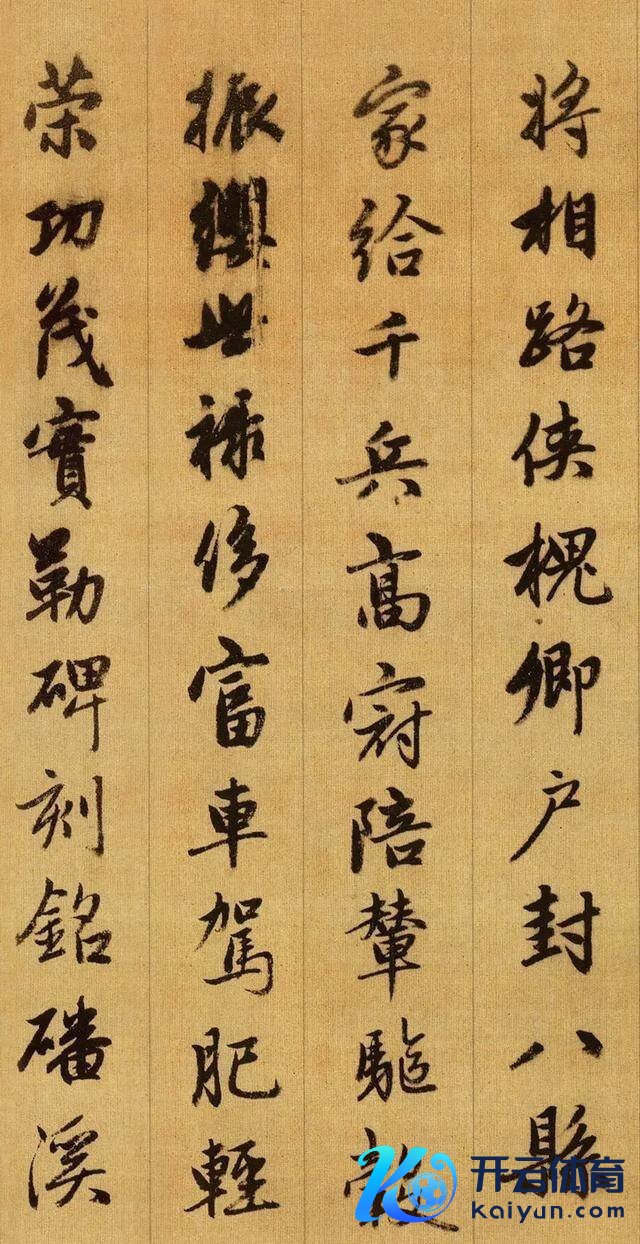 將相路侠槐卿户封八縣
家給千兵高冠陪輦駈轂
振纓世祿侈富車駕肥輕
荣功茂實勒碑刻銘磻溪
开云体育
kaiyun.com